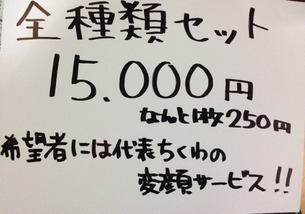 全種類セット
15.000円
なんと1枚250円
希望者には代表ちくわの
変顔サービス!!